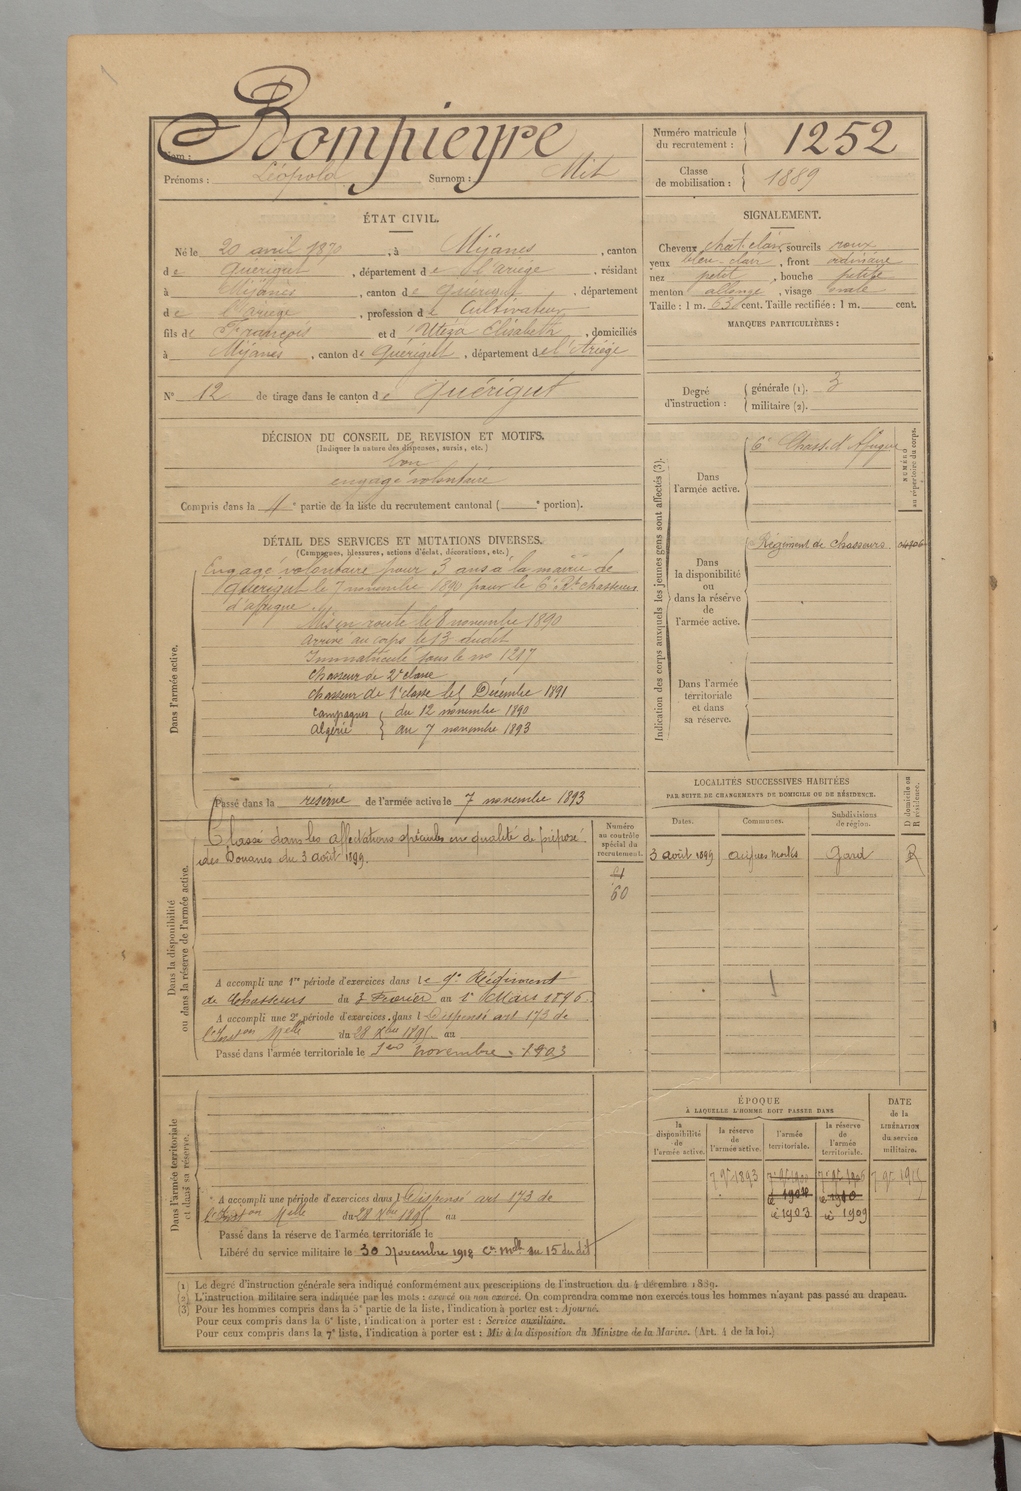 Nom : Bompieyre
Prénoms : Léopold Surnom : Mit
Numéro matricule du recrutement : 1252
Classe de mobilisation : 1889
ÉTAT CIVIL.
Né le 20 avril 1870, à Mijanès, canton
de Quérigut, département de l'ariège, résidant
à Mijanès, canton de Quérigut, département
de l'ariège, profession de Cultivateur
fils de François et d'Utéza Elisabeth, domiciliés
à Mijanès, canton de Quérigut, département de l'Ariège
N° 12 de tirage dans le canton de Quérigut
SIGNALEMENT.
Cheveux chat. clair, sourcils roux
yeux bleu-clair, front ordinaire
nez petit, bouche petite
menton allongé, visage ovale
Taille : 1 m. 63 cent. Taille rectifiée : 1 m. cent.
MARQUES PARTICULIÈRES :
Degré d'instruction : générale (1). 3
militaire (2).
DÉCISION DU CONSEIL DE REVISION ET MOTIFS.
(Indiquer la nature des dispenses, sursis, etc.)
bon
engagé volontaire
Compris dans la 4e partie de la liste du recrutement cantonal ( e portion).
DÉTAIL DES SERVICES ET MUTATIONS DIVERSES.
(Campagnes, blessures, actions d'éclat, décorations, etc.)
Dans l'armée active.
Engagé volontaire pour 3 ans à la mairie de
Quérigut le 7 novembre 1890 pour le 6e Rt chasseurs
d'afrique.
Mis en route le 8 novembre 1890
arrivé au corps le 13 dudit
Immatriculé sous le no 1217
Chasseur de 2e classe
Chasseur de 1e classe le 5 Décembre 1891
Campagnes du 12 novembre 1890
Algérie au 7 novembre 1893
Passé dans la réserve de l'armée active le 7 novembre 1893
Indication des corps auxquels les jeunes gens sont affectés (3).
NUMÉRO au répertoire du corps.
Dans l'armée active.
6e Chass. d'Afrique
Dans la disponibilité ou dans la réserve de l'armée active.
Régiment de chasseurs
Dans l'armée territoriale et dans sa réserve.
LOCALITÉS SUCCESSIVES HABITÉES
PAR SUITE DE CHANGEMENTS DE DOMICILE OU DE RÉSIDENCE.
Dates. Communes. Subdivisions de région. D. domicile ou R. résidence.
3 août 1899 Aigues Mortes Gard R
Dans la disponibilité ou dans la réserve de l'armée active.
Numéro au contrôle spécial du recrutement.
60
Classé dans les affectations spéciales en qualité de préposé
des Douanes du 3 août 1899.
A accompli une 1re période d'exercices dans le 9e Régiment
de Chasseurs du 3 Février au 1er Mars 1896.
A accompli une 2e période d'exercices dans l Dispensé art 173 de
l'Inston Melle du 28 Xbre 1895 au
Passé dans l'armée territoriale le 1er novembre 1903
Dans l'armée territoriale et dans sa réserve.
A accompli une période d'exercices dans l Dispensé art 173 de
l'Inston Melle du 28 Xbre 1895 au
Passé dans la réserve de l'armée territoriale le
Libéré du service militaire le 30 Novembre 1918 Cre Melle du 15 du dit
ÉPOQUE
À LAQUELLE L'HOMME DOIT PASSER DANS
la disponibilité de l'armée active. la réserve de l'armée active. l'armée territoriale. la réserve de l'armée territoriale.
DATE de la LIBÉRATION du service militaire.
7 9bre 1893
1903 1909
(1) Le degré d'instruction générale sera indiqué conformément aux prescriptions de l'instruction du 4 décembre 1889.
(2) L'instruction militaire sera indiquée par les mots : exercé ou non exercé. On comprendra comme non exercés tous les hommes n'ayant pas passé au drapeau.
(3) Pour les hommes compris dans la 5e partie de la liste, l'indication à porter est : Ajourné.
Pour ceux compris dans la 6e liste, l'indication à porter est : Service auxiliaire.
Pour ceux compris dans la 7e liste, l'indication à porter est : Mis à la disposition du Ministre de la Marine. (Art. 4 de la loi.)